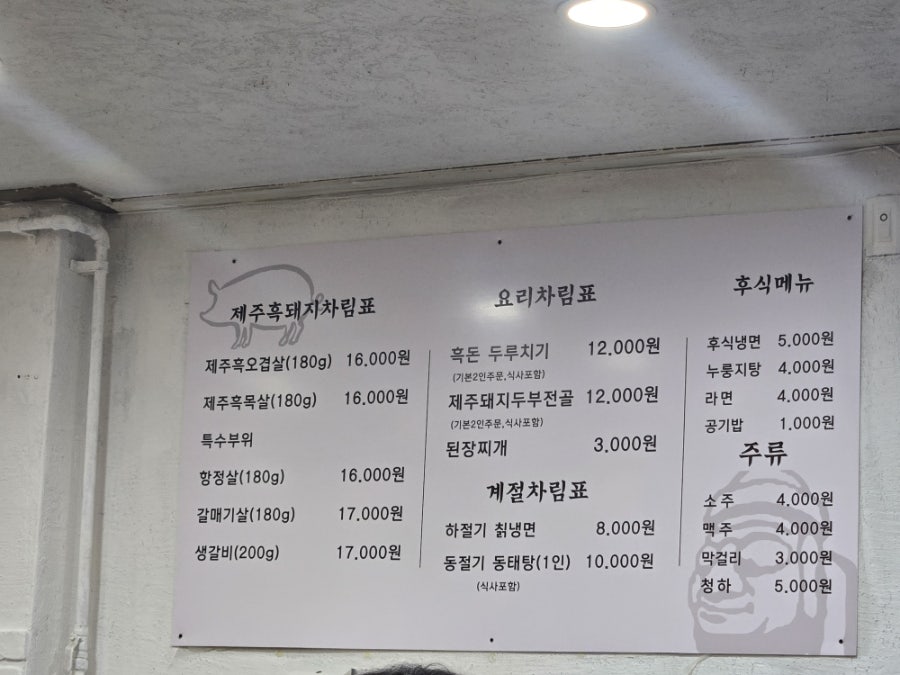 제주흑돼지차림표
제주흑오겹살(180g) 16.000원
제주흑목살(180g) 16.000원
특수부위
항정살(180g) 16.000원
갈매기살(180g) 17.000원
생갈비(200g) 17.000원
요리차림표
흑돈 두루치기 12.000원
(기본2인주문,식사포함)
제주돼지두부전골 12.000원
(기본2인주문,식사포함)
된장찌개 3.000원
계절차림표
하절기 칡냉면 8.000원
동절기 동태탕(1인) 10.000원
(식사포함)
후식메뉴
후식냉면 5.000원
누룽지탕 4.000원
라면 4.000원
공기밥 1.000원
주류
소주 4.000원
맥주 4.000원
막걸리 3.000원
청하 5.000원